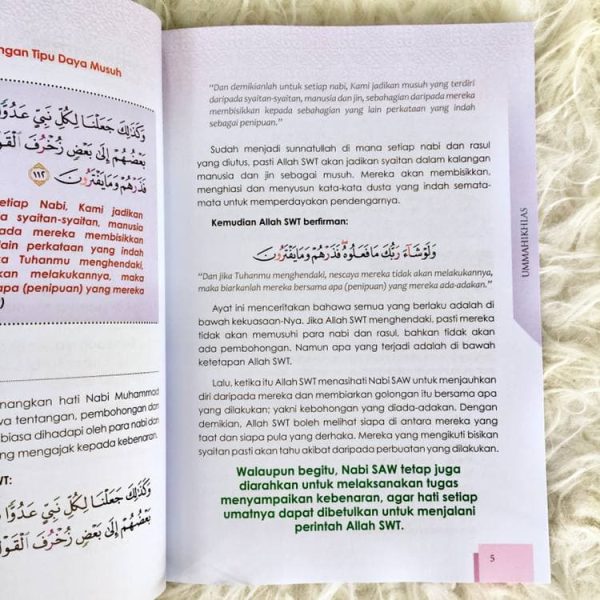 ngan Tipu Daya Musuh
وَكَذَٰلِكَ جَعَلْنَا لِكُلِّ نَبِيٍّ عَدُوًّا
بَعْضُهُمْ إِلَىٰ بَعْضٍ زُخْرُفَ الْقَوْ
فَذَرْهُمْ وَمَا يَفْتَرُونَ ١١٢
etiap Nabi, Kami jadikan
a syaitan-syaitan, manusia
pada mereka membisikkan
lain perkataan yang indah
ka Tuhanmu menghendaki,
kan melakukannya, maka
apa (penipuan) yang mereka
)
nangkan hati Nabi Muhammad
wa tentangan, pembohongan dan
biasa dihadapi oleh para nabi dan
ng mengajak kepada kebenaran.
WT:
وَكَذَٰلِكَ جَعَلْنَا لِكُلِّ نَبِيٍّ عَدُوًّا
بَعْضُهُمْ إِلَىٰ بَعْضٍ زُخْرُفَ الْقَوْ
“Dan demikianlah untuk setiap nabi, Kami jadikan musuh yang terdiri
daripada syaitan-syaitan, manusia dan jin, sebahagian daripada mereka
membisikkan kepada sebahagian yang lain perkataan yang indah
sebagai penipuan.”
Sudah menjadi sunnatullah di mana setiap nabi dan rasul
yang diutus, pasti Allah SWT akan jadikan syaitan dalam kalangan
manusia dan jin sebagai musuh. Mereka akan membisikkan,
menghiasi dan menyusun kata-kata dusta yang indah semata-
mata untuk memperdayakan pendengarnya.
Kemudian Allah SWT berfirman:
وَلَوْ شَاءَ رَبُّكَ مَا فَعَلُوهُ ۖ فَذَرْهُمْ وَمَا يَفْتَرُونَ
“Dan jika Tuhanmu menghendaki, nescaya mereka tidak akan melakukannya,
maka biarkanlah mereka bersama apa (penipuan) yang mereka ada-adakan.”
Ayat ini menceritakan bahawa semua yang berlaku adalah di
bawah kekuasaan-Nya. Jika Allah SWT menghendaki, pasti mereka
tidak akan memusuhi para nabi dan rasul, bahkan tidak akan
ada pembohongan. Namun apa yang terjadi adalah di bawah
ketetapan Allah SWT.
Lalu, ketika itu Allah SWT menasihati Nabi SAW untuk menjauhkan
diri daripada mereka dan membiarkan golongan itu bersama apa
yang dilakukan; yakni kebohongan yang diada-adakan. Dengan
demikian, Allah SWT boleh melihat siapa di antara mereka yang
taat dan siapa pula yang derhaka. Mereka yang mengikuti bisikan
syaitan pasti akan tahu akibat daripada perbuatan yang dilakukan.
Walaupun begitu, Nabi SAW tetap juga
diarahkan untuk melaksanakan tugas
menyampaikan kebenaran, agar hati setiap
umatnya dapat dibetulkan untuk menjalani
perintah Allah SWT.
UMMAHIKHLAS
5